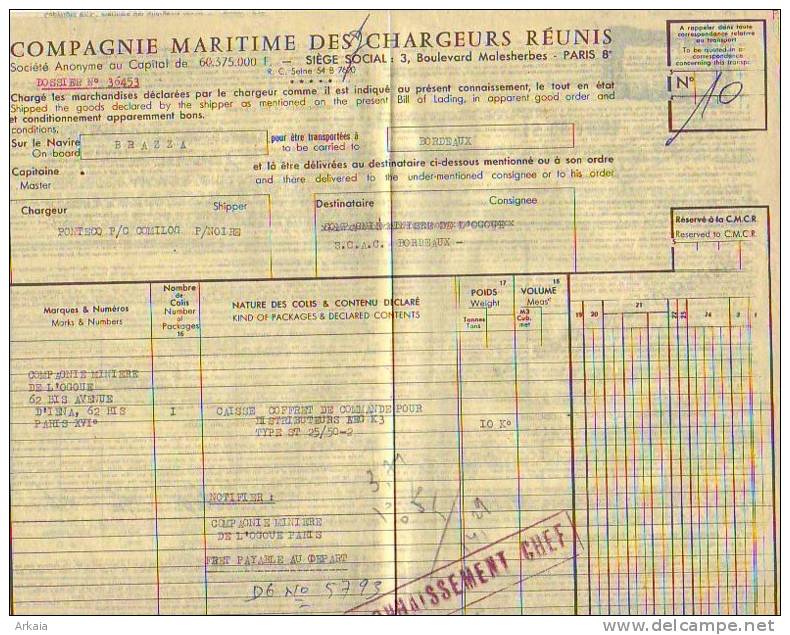 COMPAGNIE MARITIME DES CHARGEURS RÉUNIS
Société Anonyme au Capital de 60.375.000 F. — SIÈGE SOCIAL : 3, Boulevard Malesherbes - PARIS 8e
R. C. Seine 54 B 7690
DOSSIER No 36453
A rappeler dans toute
correspondance relative
au transport
To be quoted in a
correspondence
concerning this transp.
N° 10
Chargé les marchandises déclarées par le chargeur comme il est indiqué au présent connaissement, le tout en état
Shipped the goods declared by the shipper as mentioned on the present Bill of Lading, in apparent good order and
et conditionnement apparemment bons.
conditions.
Sur le Navire
On board
BRAZZA
pour être transportées à
to be carried to
BORDEAUX
Capitaine
Master
et là être délivrées au destinataire ci-dessous mentionné ou à son ordre
and there delivered to the under-mentioned consignee or to his order
Chargeur Shipper
PONTECQ P/C COMILOG P/NOIRE
Destinataire Consignee
COMPAGNIE MINIERE DE L'OGOUE
S.C.A.C. BORDEAUX -
Réservé à la C.M.C.R.
Reserved to C.M.C.R.
Marques & Numéros
Marks & Numbers
Nombre
de
Colis
Number
of
Packages
16
NATURE DES COLIS & CONTENU DÉCLARÉ
KIND OF PACKAGES & DECLARED CONTENTS
17
POIDS
Weight
Tonnes
Tons
18
VOLUME
Meast
M3
Cub.
met
19 20 21 22 23 24 2 1
COMPAGNIE MINIERE
DE L'OGOUE
62 BIS AVENUE
D'IENA, 62 BIS
PARIS XVI°
I
CAISSE COFFRET DE COMMANDE POUR
DISTRIBUTEURS REG K3
TYPE ST 25/50-2
IO K°
NOTIFIER :
COMPAGNIE MINIERE
DE L'OGOUE PARIS
FRET PAYABLE AU DEPART
D6 No 5793
CONNAISSEMENT CHEF
Arkaia
delcampe.net